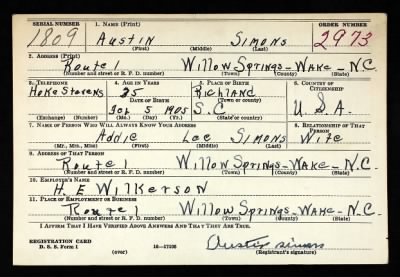 SERIAL NUMBER 1. NAME (Print) ORDER NUMBER
1809 AUSTIN SIMONS 2973
(First) (Middle) (Last)
2. ADDRESS (Print)
Route 1 Willow Springs-Wake-N.C.
(Number and street or R. F. D. number) (Town) (County) (State)
3. TELEPHONE 4. AGE IN YEARS 5. PLACE OF BIRTH 6. COUNTRY OF CITIZENSHIP
Hoke Stevens 35 Richland
DATE OF BIRTH (Town or county)
5 1905 S.C. U.S.A.
(Exchange) (Number) (Mo.) (Day) (Yr.) (State or country)
7. NAME OF PERSON WHO WILL ALWAYS KNOW YOUR ADDRESS 8. RELATIONSHIP OF THAT PERSON
Addie Lee Simons Wife
(Mr., Mrs., Miss) (First) (Middle) (Last)
9. ADDRESS OF THAT PERSON
Route 1 Willow Springs-Wake-N.C.
(Number and street or R. F. D. number) (Town) (County) (State)
10. EMPLOYER'S NAME
H. E Wilkerson
11. PLACE OF EMPLOYMENT OR BUSINESS
Route 1 Willow Springs-Wake-N.C.
(Number and street or R. F. D. number) (Town) (County) (State)
I AFFIRM THAT I HAVE VERIFIED ABOVE ANSWERS AND THAT THEY ARE TRUE.
REGISTRATION CARD Austin Simons
D. S. S. Form 1 (over) 16-17105 (Registrant's signature)